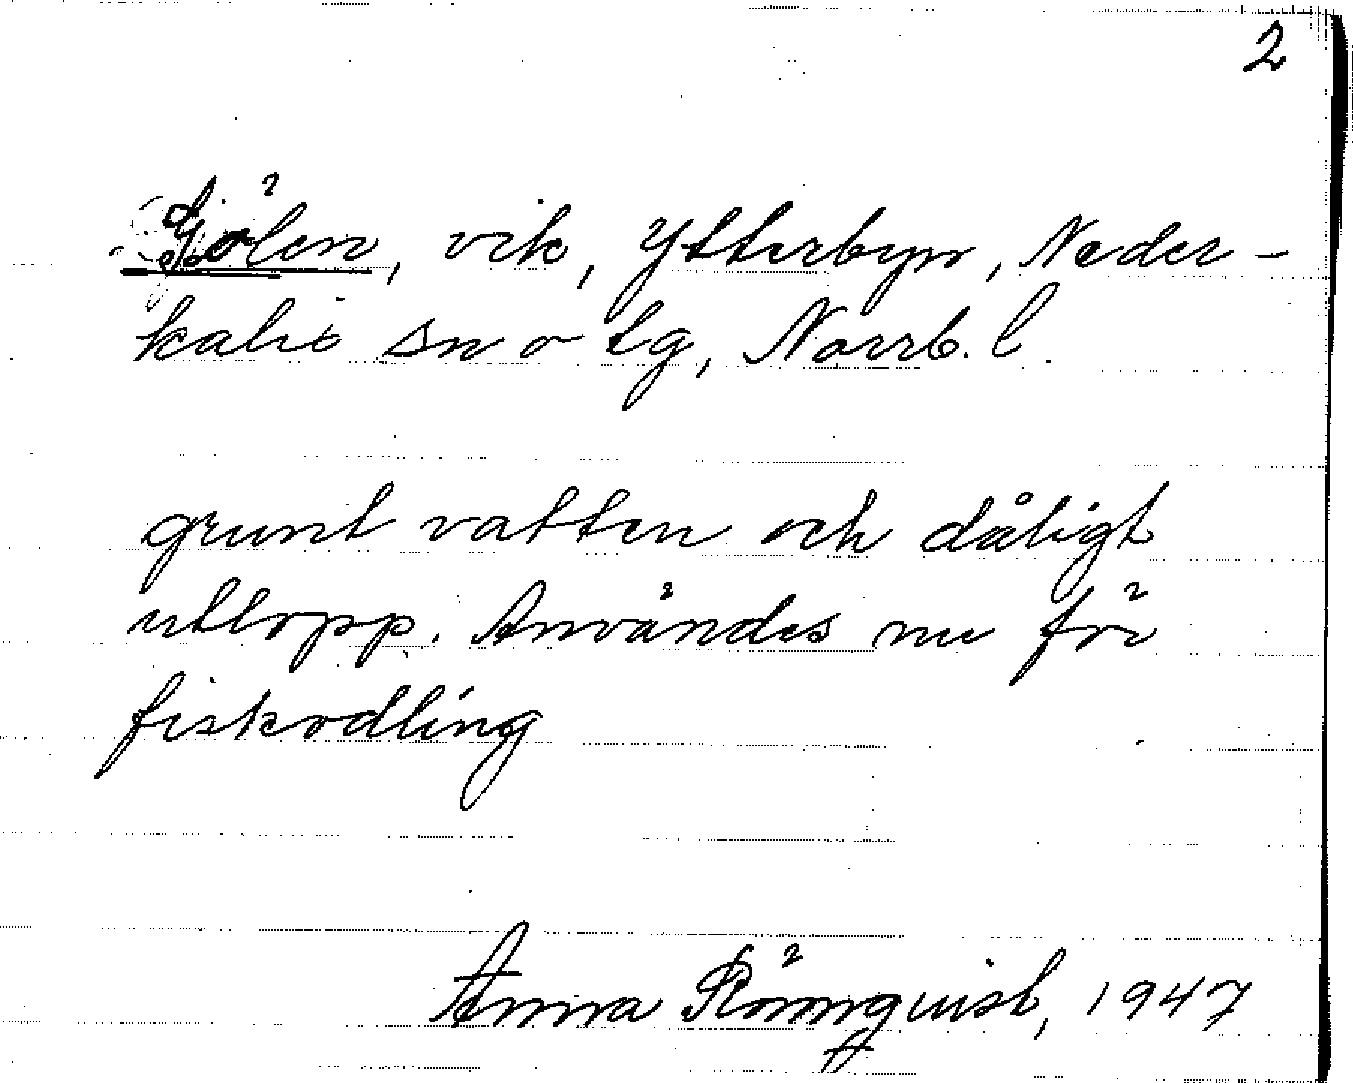 2
Gölen, vik, Ytterbyn, Neder-
kalix sn o tg, Norrb. l.
grunt vatten och dåligt
utlopp. Användes nu för
fiskodling
Anna Rönnquist, 1947